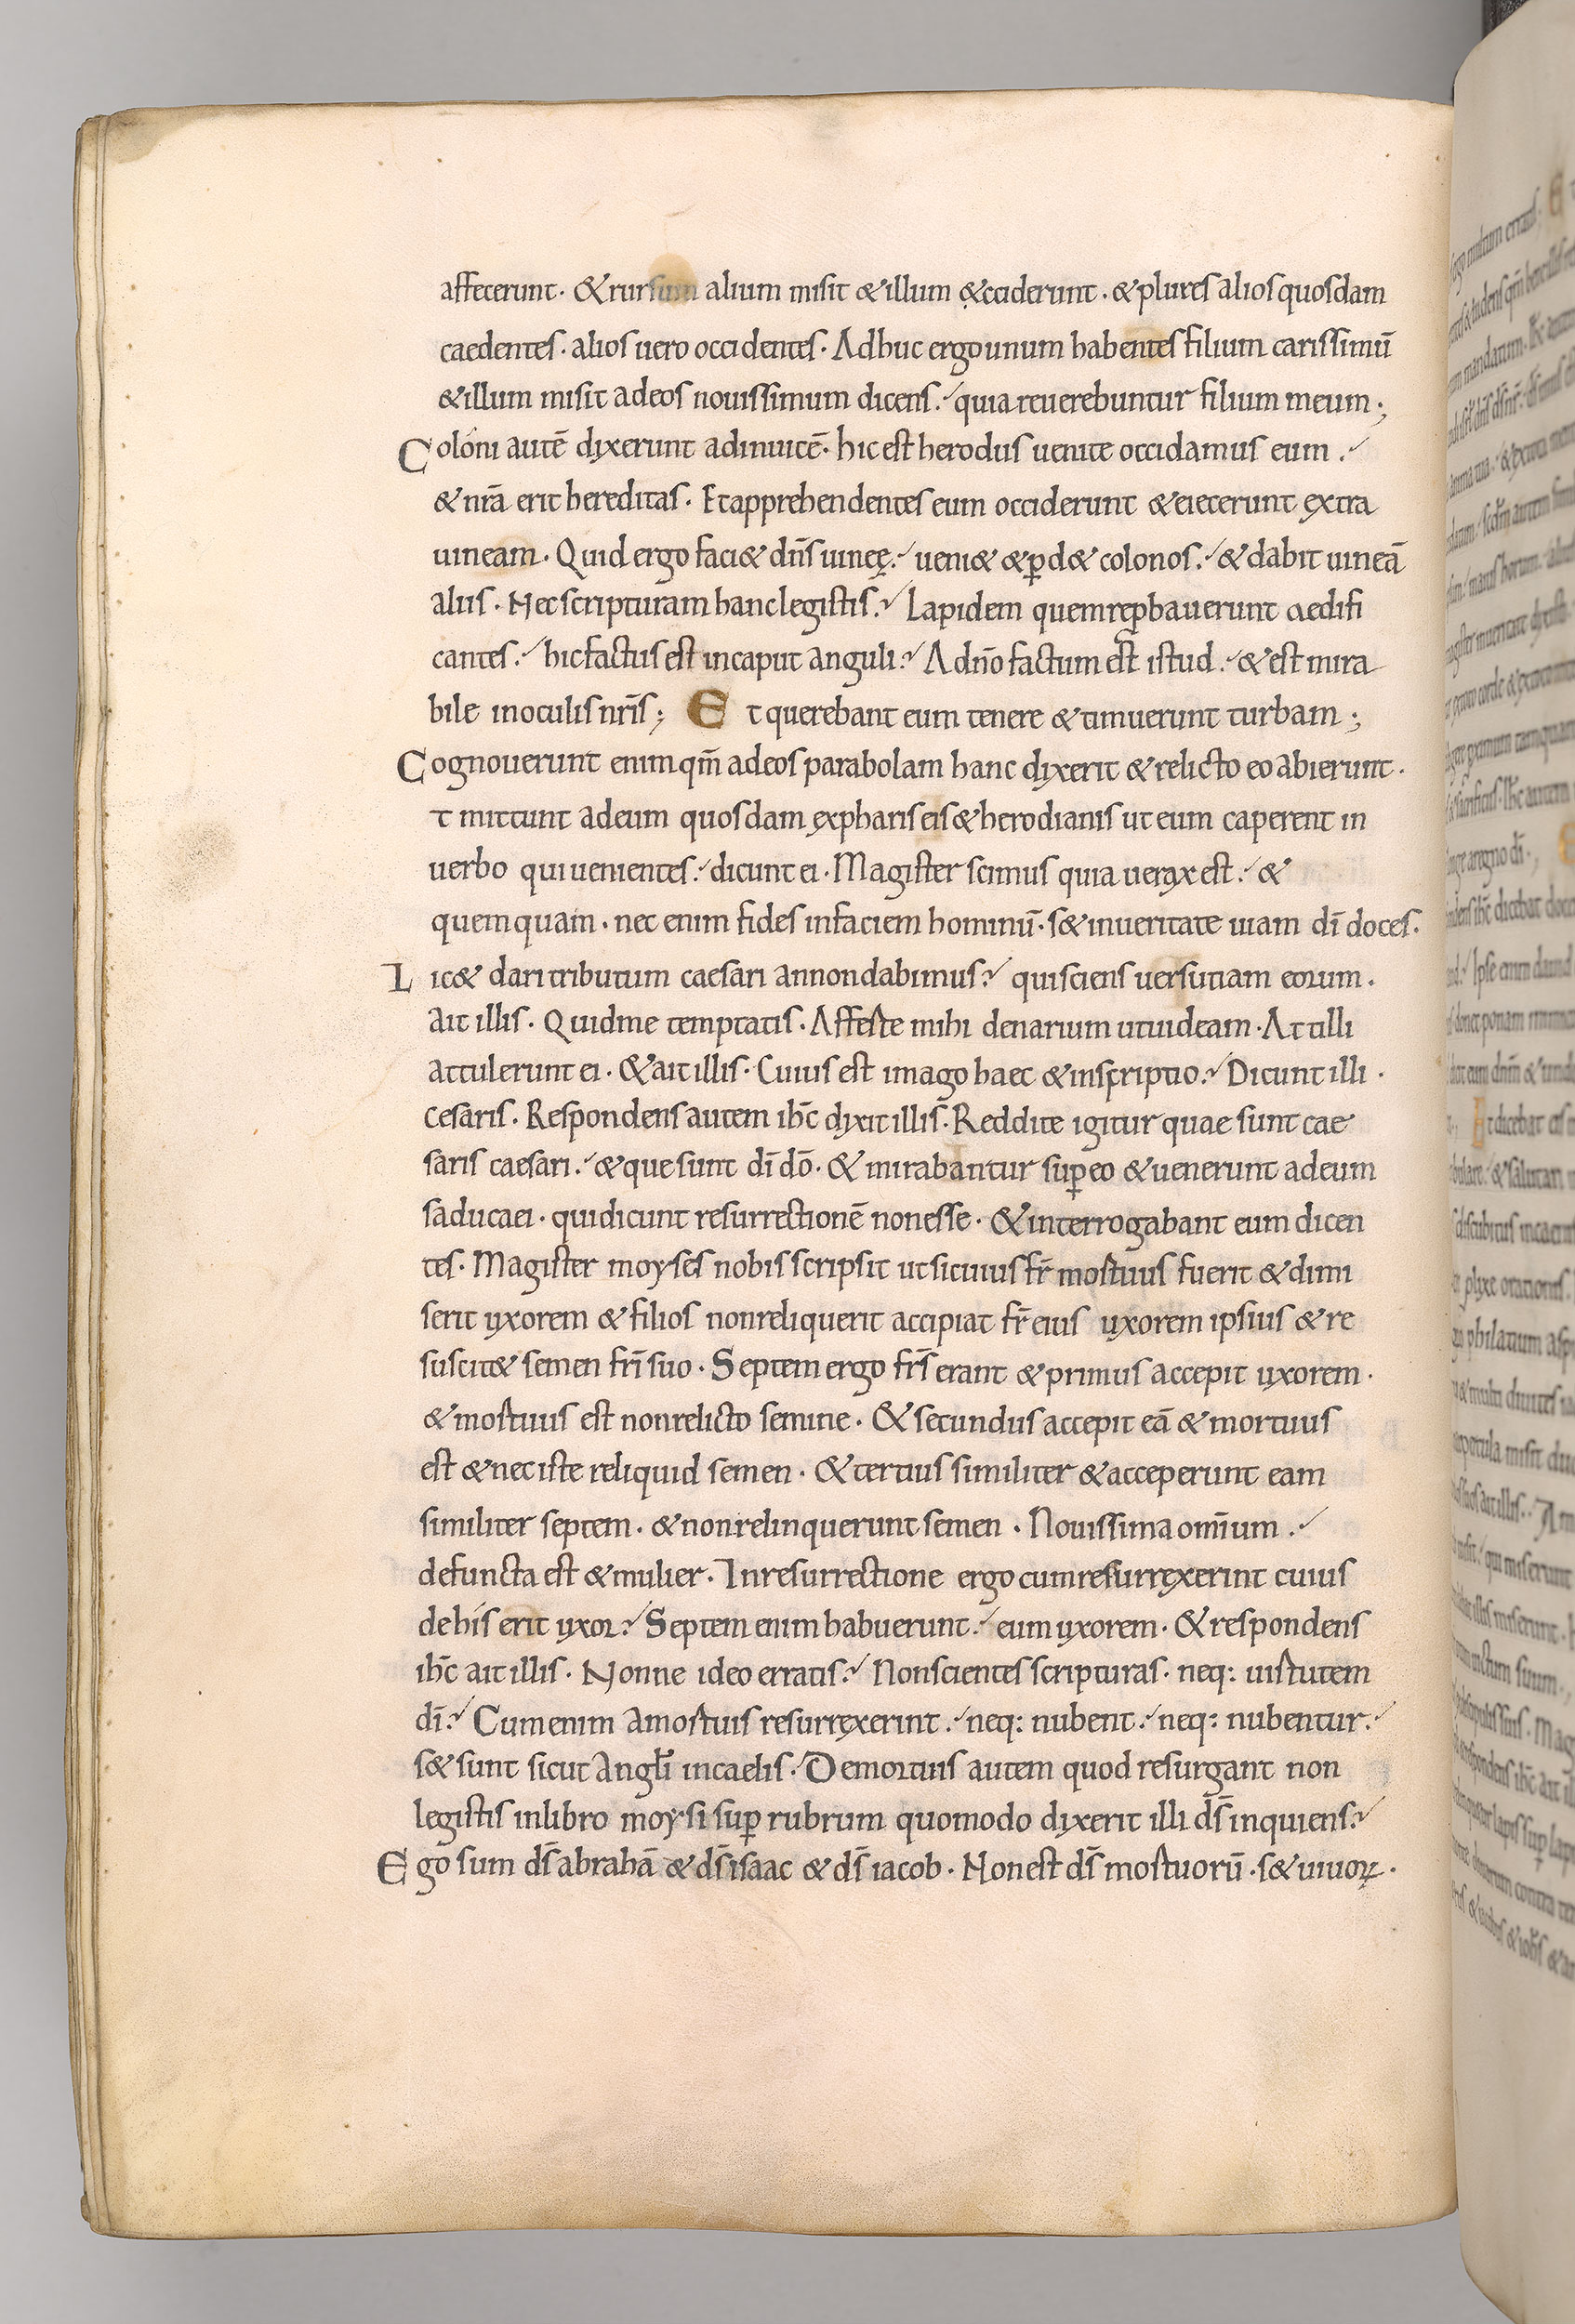 affecerunt. & rursum alium misit & illum &cciderunt. & plures alios quosdam
caedentes. alios uero occidentes. Adhuc ergo unum habentes filium carissimū
& illum misit ad eos nouissimum dicens. quia reuerebuntur filium meum;
Coloni autē dixerunt ad inuicē. hic est herodus uenite occidamus eum.
& nr̄a erit hereditas. Et apprehendentes eum occiderunt & eiecerunt extra
uineam. Quid ergo faci& dn̄s uineę. ueni& & ꝑd& colonos. & dabit uineā
aliis. Nec scripturam hanc legistis? Lapidem quem reꝓbauerunt aedifi
cantes. hic factus est in caput anguli? A dn̄o factum est istud. & est mira
bile in oculis nr̄is; Et querebant eum tenere & timuerunt turbam;
Cognouerunt enim qm̄ ad eos parabolam hanc dixerit & relicto eo abierunt.
t mittunt ad eum quosdam ex phariseis & herodianis ut eum caperent in
uerbo qui uenientes. dicunt ei. Magister scimus quia uerax est. &
quemquam. nec enim fides in faciem hominū. s& in ueritate uiam dī doces.
Lic& dari tributum caesari an non dabimus? qui sciens uersutiam eorum.
ait illis. Quid me temptatis. Afferte mihi denarium ut uideam. At illi
attulerunt ei. & ait illis. Cuius est imago haec & inscriptio? Dicunt illi.
cesaris. Respondens autem ih̄c dixit illis. Reddite igitur quae sunt cae
saris caesari. & que sunt dī dō. & mirabantur suꝑ eo & uenerunt ad eum
saducaei. qui dicunt resurrectionē non esse. & interrogabant eum dicen
tes. Magister moyses nobis scripsit ut si cuius fr̄ mortuus fuerit & dimi
serit uxorem & filios non reliquerit accipiat fr̄ eius uxorem ipsius & re
suscit& semen fr̄i suo. Septem ergo fr̄s erant & primus accepit uxorem.
& mortuus est non relicto semine. & secundus accepit eā & mortuus
est & nec iste reliquid semen. & tertius similiter & acceperunt eam
similiter septem. & non relinquerunt semen. Nouissima omīum.
defuncta est & mulier. In resurrectione ergo cum resurrexerint cuius
de his erit uxor? Septem enim habuerunt. eum uxorem. & respondens
ih̄c ait illis. Nonne ideo erratis? Non scientes scripturas. neq: uirtutem
dī? Cum enim a mortuis resurrexerint. neq: nubent. neq: nubentur.
s& sunt sicut angl̄i in caelis. De mortuis autem quod resurgant non
legistis in libro moysi suꝑ rubrum quomodo dixerit illi ds̄ inquiens?
Ego sum ds̄ abrahā & ds̄ isaac & ds̄ iacob. Non est ds̄ mortuorū. s& uiuoꝝ.